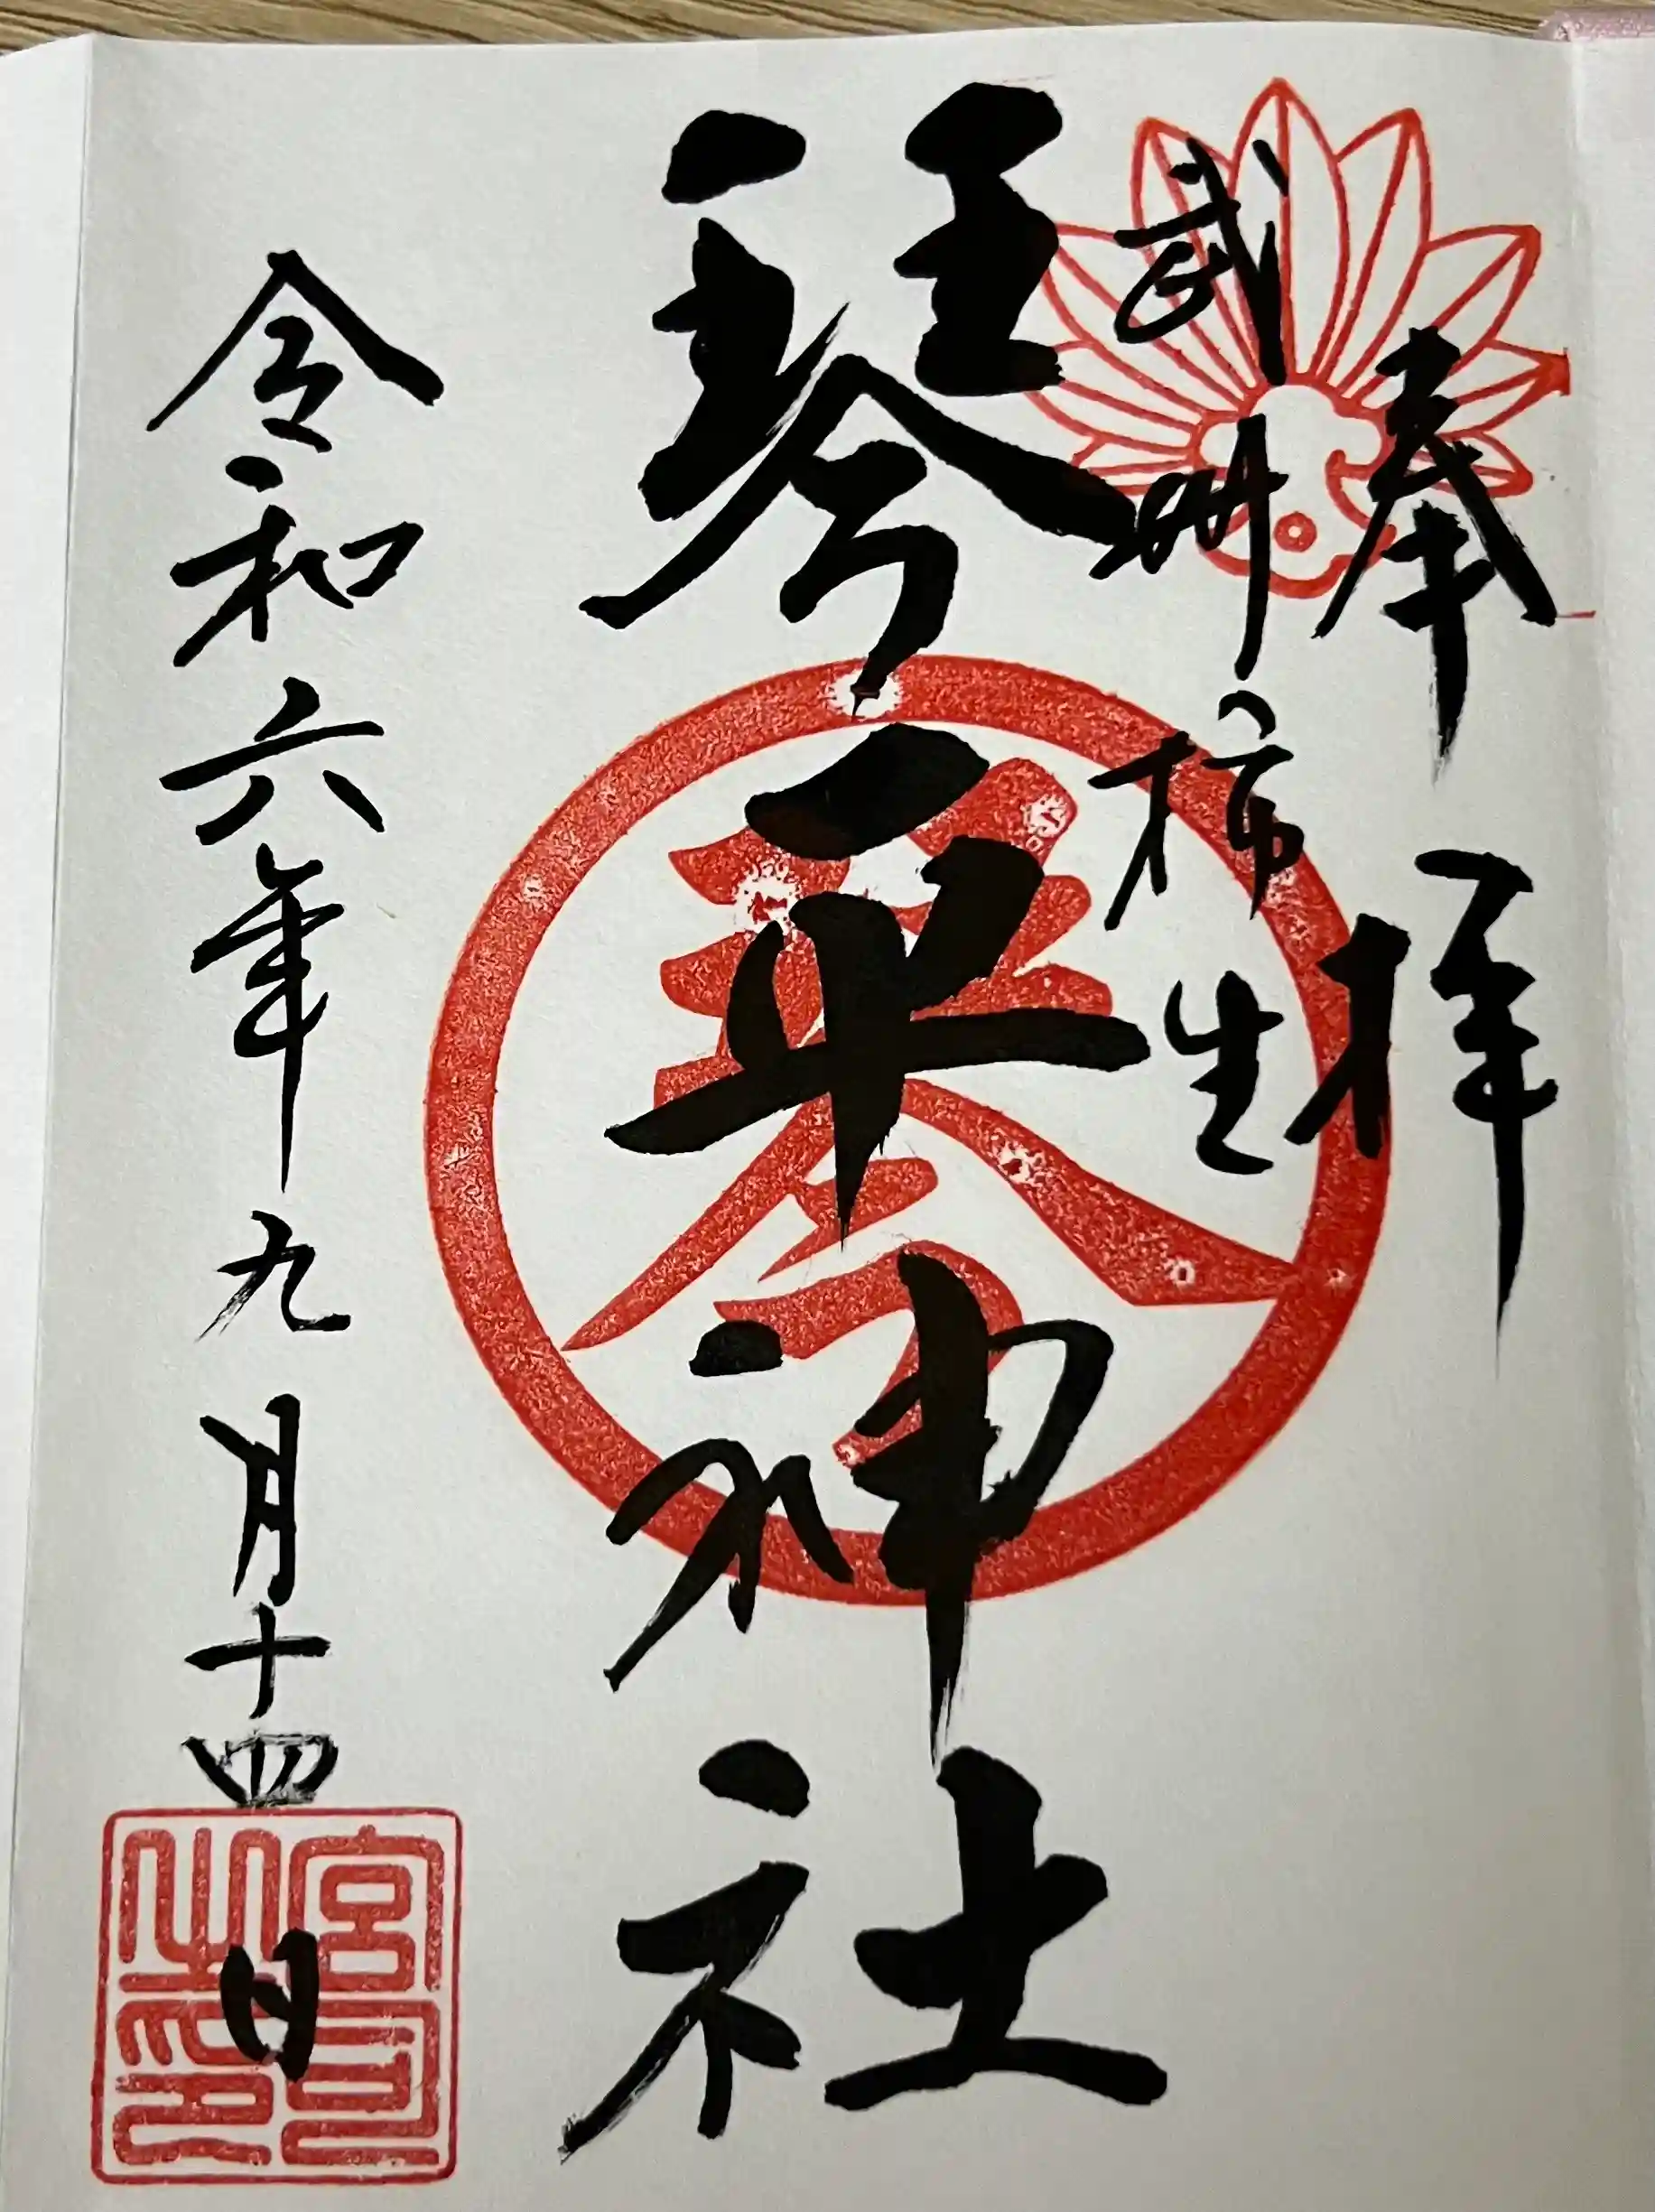 奉拝
武州柿生
琴平神社
令和六年九月十四日
琴
宮司之印